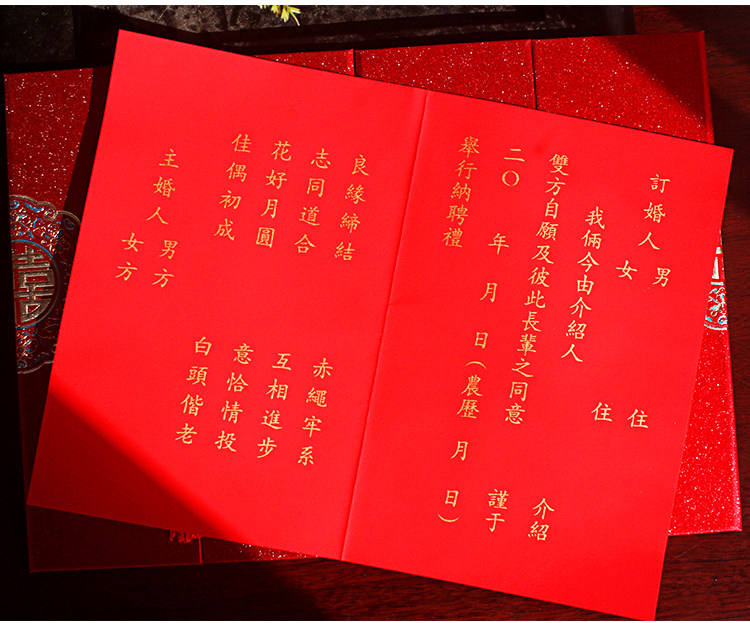 訂婚人 男 住
女 住
我倆今由介紹人 介紹
雙方自願及彼此長輩之同意 謹于
二〇 年 月 日（農歷 月 日）
舉行納聘禮
良緣締結 赤繩牢系
志同道合 互相進步
花好月圓 意恰情投
佳偶初成 白頭偕老
主婚人 男方
女方
囍